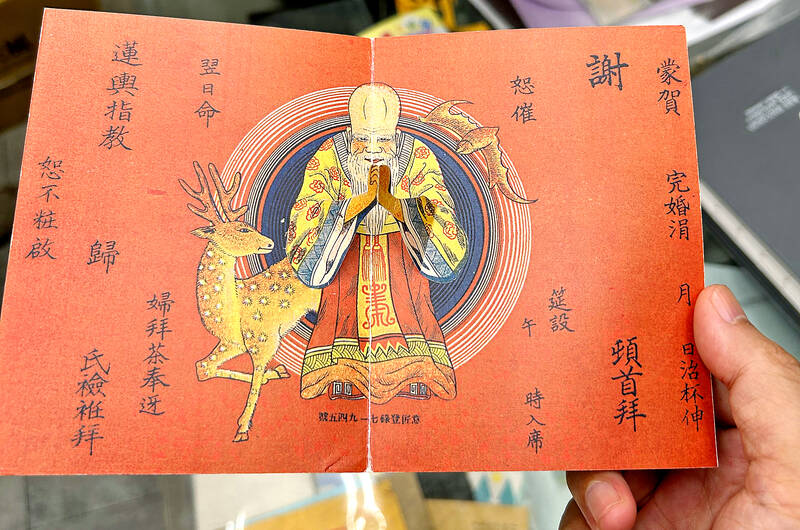 蒙賀 完婚涓 月 日治杯伸
謝 頓首拜
筵設
恕催 午 時入席
壽
意匠登錄七一九四五號
翌日命
婦拜茶奉迓
蓮輿指教
歸 氏檢袵拜
恕不粧啟